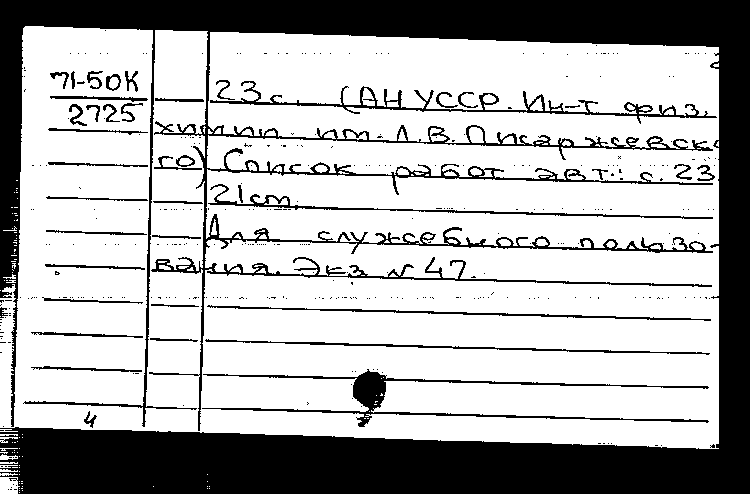 71-50К
2725
23 с. (АН УССР. Ин-т физ.
химии им. Л.В. Писаржевско
го) Список работ авт.: с. 23
21cm.
Для служебного пользо-
вания. Экз N 47.
4